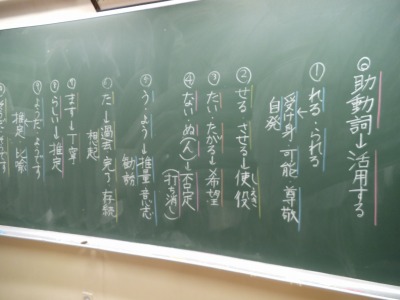 ◎助動詞→活用する
①れる・られる
受け身 可能 尊敬
自発
②せる・させる→使役
しえき
③たい・たがる→希望
④ない・ぬ(ん)→否定
(打ち消し)
⑤う・よう→推量 意志
勧誘
⑥た→過去 完了 存続
想起
⑦ます→丁寧
⑧らしい→推定
⑨ようだ・ようです
推定 比喩